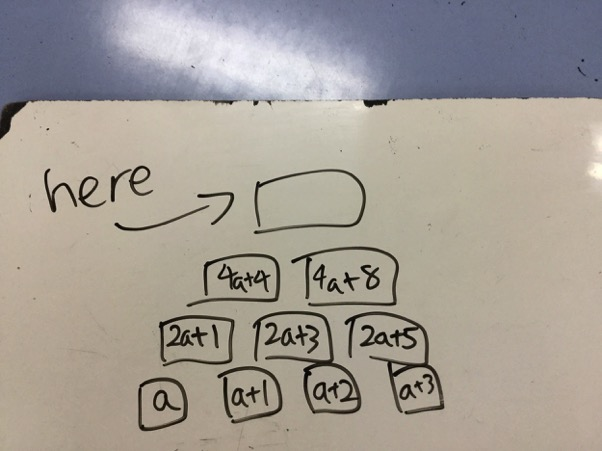 here
4a+4 4a+8
2a+1 2a+3 2a+5
a a+1 a+2 a+3